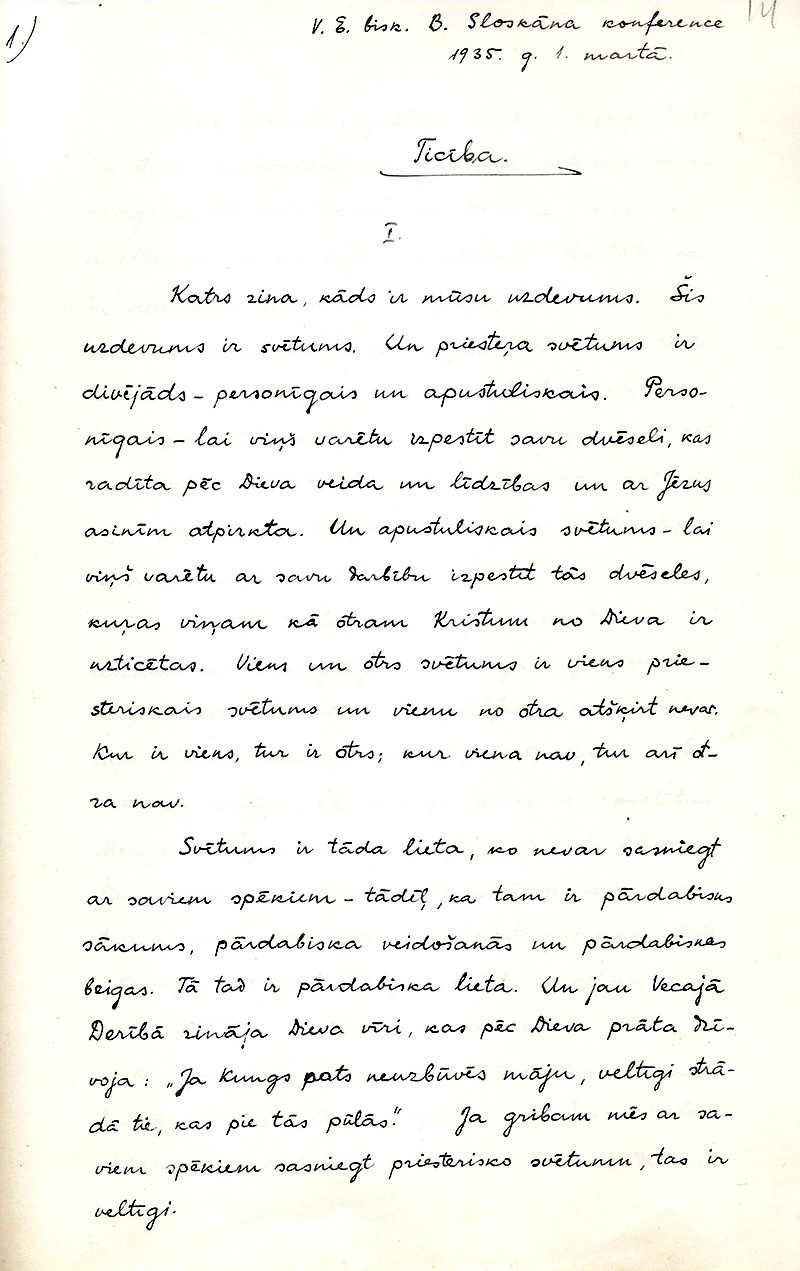 1.)
V. E. bisk. B. Sloskāna konference
14
1935. g. 1. martā.
Ticība.
I.
Katrs zina, kāds ir mūsu uzdevums. Šis
uzdevums ir svētums. Un priesteŗa svētums ir
divējāds – personīgais un apustuliskais. Perso-
nīgais – lai viņš varētu izpestīt savu dvēseli, kas
radīta pēc Dieva veida un līdzības un ar Jēzus
asinīm atpirkta. Un apustuliskais svētums – lai
viņš varētu ar savu darbību izpestīt tās dvēseles,
kuŗas viņam kā otram Kristum no Dieva ir
uzticētas. Viens un otrs svētums ir viens prie-
steriskais svētums un vienu no otra atšķirt nevar.
Kur ir viens, tur ir otrs; kur viena nav, tur arī ot-
ra nav.
Svētums ir tāda lieta, ko nevar sasniegt
ar saviem spēkiem – tādēļ, ka tam ir pārdabisks
sākums, pārdabiska veidošanās un pārdabiskas
beigas. Tā tad ir pārdabiska lieta. Un jau Vecajā
Derībā zināja Dieva vīri, kas pēc Dieva prāta dzī-
voja: „Ja Kungs pats neuzbūvēs māju, veltīgi strā-
dā tie, kas pie tās pūlās." Ja gribam mēs ar sa-
viem spēkiem sasniegt priesterisko svētumu, tas ir
veltīgi.